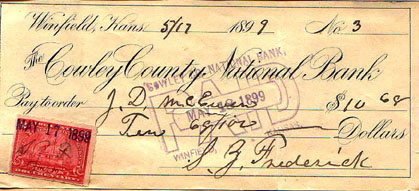 Winfield, Kans. 5/17 1899 No 3
The Cowley County National Bank
Pay to order J. D. McEwen $10 68
Ten 68/100 Dollars
J. F. Frederick
COWLEY CO. NATIONAL BANK,
PAID
MAY 17 1899
WINFIELD, KANSAS
MAY 17 1899